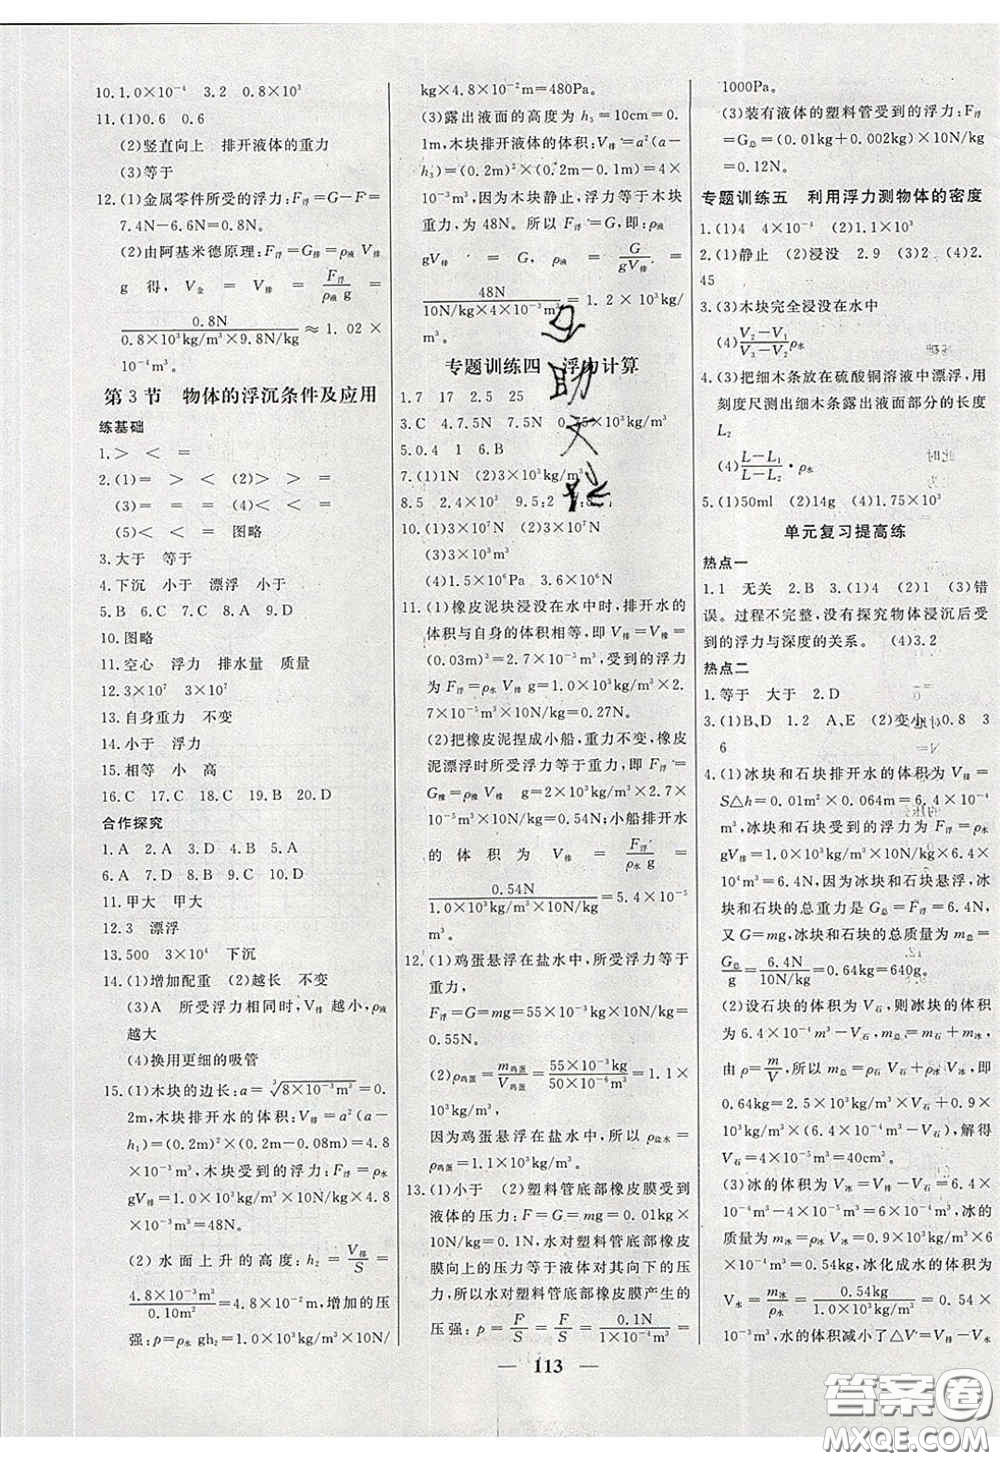 10.1.0×10⁻⁴　3.2　0.8×10³
11.(1)0.6　0.6
(2)竖直向上　排开液体的重力
(3)等于
12.(1)金属零件所受的浮力:F浮=G-F=
7.4N-6.6N=0.8N。
(2)由阿基米德原理:F浮=G排=ρ液 V排
g 得, V金 = V排 = F浮/ρ液 g =
0.8N/0.8×10³kg/m³×9.8N/kg ≈ 1.02 ×
10⁻⁴m³。
第 3 节　物体的浮沉条件及应用
练基础
1.＞　＜　=
2.(1)=　＞　＜　(2)＞　＞　＜
(3)=　=　=　(4)＜　＜　=
(5)＜　＜　=　图略
3.大于　等于
4.下沉　小于　漂浮　小于
5.B　6.C　7.C　8.A　9.D
10.图略
11.空心　浮力　排水量　质量
12.3×10⁷　3×10⁷
13.自身重力　不变
14.小于　浮力
15.相等　小　高
16.C　17.C　18.A　19.B　20.D
合作探究
1.A　2.A　3.D　4.B　5.A
6.A　7.D　8.A　9.C　10.D
11.甲大　甲大
12.3　漂浮
13.500　3×10⁴　下沉
14.(1)增加配重　(2)越长　不变
(3)A　所受浮力相同时,V排 越小,ρ液
越大
(4)换用更细的吸管
15.(1)木块的边长:a=³√8×10⁻³m³=0.
2m,木块排开水的体积:V排=a²(a-
h₁)=(0.2m)²×(0.2m-0.08m)=4.8
×10⁻³m³,木块受到的浮力:F浮=ρ水
gV排=1.0×10³kg/m³×10N/kg×4.8
×10⁻³m³=48N。
(2)水面上升的高度:h₂=V排/S=
4.8×10⁻³m³/0.10m²=4.8×10⁻²m,增加的压
强:p=ρ水 gh₂=1.0×10³kg/m³×10N/
kg×4.8×10⁻²m=480Pa。
(3)露出液面的高度为 h₃=10cm=0.
1m,木块排开液体的体积:V排=a²(a-
h₃)=(0.2m)²×(0.2m-0.1m)=4×
10⁻³m³,因为木块静止,浮力等于木块
重力,为 48N。所以 F浮=G,即:ρ液
gV排 = G　ρ液 = G/gV排 =
48N/10N/kg×4×10⁻³m³ = 1.2 × 10³kg/
m³。
专题训练四　浮力计算
1.7　17　2.5　25
3.C　4.7.5N　7.5N
5.0.4　1　6.B
7.(1)1N　(2)3×10³kg/m³
8.5　2.4×10³　9.5:2
10.(1)3×10⁷N　(2)3×10⁷N
(3)3×10³m³
(4)1.5×10⁶Pa　3.6×10⁶N
11.(1)橡皮泥块浸没在水中时,排开水的
体积与自身的体积相等,即 V排=V橡=
(0.03m)³=2.7×10⁻⁵m³,受到的浮力
为 F浮=ρ水 V排 g=1.0×10³kg/m³×2.
7×10⁻⁵m³×10N/kg=0.27N。
(2)把橡皮泥捏成小船,重力不变,橡皮
泥漂浮时所受浮力等于重力,即 F浮′=
G橡=ρ橡 V橡 g=2×10³kg/m³×2.7×
10⁻⁵m³×10N/kg=0.54N;小船排开水
的体积为 V排 = F浮′/ρ水 g =
0.54N/1.0×10³kg/m³×10N/kg=5.4×10⁻⁵
m³。
12.(1)鸡蛋悬浮在盐水中,所受浮力等于
重力,
F浮=G=mg=55×10⁻³kg×10N/kg=
0.55N。
(2)ρ鸡蛋=m鸡蛋/V鸡蛋=55×10⁻³kg/50×10⁻⁶m³=1.1×
10³kg/m³,
因为鸡蛋悬浮在盐水中,所以 ρ盐水=
ρ鸡蛋=1.1×10³kg/m³。
13.(1)小于　(2)塑料管底部橡皮膜受到
液体的压力:F=G=mg=0.01kg×
10N/kg=0.1N,水对塑料管底部橡皮
膜向上的压力等于液体对其向下的压
力,所以水对塑料管底部橡皮膜产生的
压强:p=F/S=F/S=0.1N/1×10⁻⁴m²=
1000Pa。
(3)装有液体的塑料管受到的浮力:F浮
=G总=(0.01kg+0.002kg)×10N/kg=
0.12N。
专题训练五　利用浮力测物体的密度
1.(1)4　4×10⁻⁴　(2)1.1×10³
2.(1)静止　(2)浸没　2.9　(3)4　(4)2.
45
3.(3)木块完全浸没在水中
(4)V₂-V₁/V₃-V₁·ρ水
4.(3)把细木条放在硫酸铜溶液中漂浮,用
刻度尺测出细木条露出液面部分的长度
L₂
(4)L-L₁/L-L₂·ρ水
5.(1)50ml　(2)14g　(4)1.75×10³
单元复习提高练
热点一
1.1　无关　2.B　3.(1)4　(2)1　(3)错
误。过程不完整,没有探究物体浸没后受
到的浮力与深度的关系。　(4)3.2
热点二
1.等于　大于　2.D
3.(1)B、D　1.2　A、E　(2)变小　0.8　3
6
4.(1)冰块和石块排开水的体积为 V排=
S△h=0.01m²×0.064m=6.4×10⁻⁴
m³,冰块和石块受到的浮力为 F浮=ρ水
gV排=1×10³kg/m³×10N/kg×6.4×
10⁻⁴m³=6.4N,因为冰块和石块悬浮,冰
块和石块的总重力为 G总=F浮=6.4N,
又 G=mg,冰块和石块的总质量为 m总=
G总/g=6.4N/10N/kg=0.64kg=640g。
(2)设石块的体积为 V石,则冰块的体积
为 6.4×10⁻⁴m³-V石,m总=m石+m冰,
由 ρ=m/V,所以 m总=ρ石 V石+ρ冰 V冰,即
0.64kg=2.5×10³kg/m³×V石+0.9×
10³kg/m³×(6.4×10⁻⁴m³-V石),解得
V石=4×10⁻⁵m³=40cm³。
(3)冰的体积为 V冰=V排-V石=6.4×
10⁻⁴m³-4×10⁻⁵m³=6×10⁻⁴m³,冰的
质量为 m冰=ρ冰 V冰=0.9×10³kg/m³×6
×10⁻⁴m³=0.54kg,冰化成水的体积为
V水=m冰/ρ水=0.54kg/1.0×10³kg/m³=0.54×
10⁻³m³,水的体积减小了△V=V冰-V水
— 113 —
答案圈
MXQE.COM